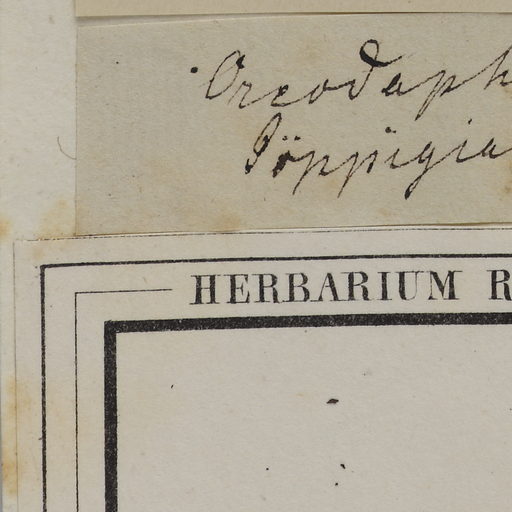 Oreodaph
Pöppigia
HERBARIUM R